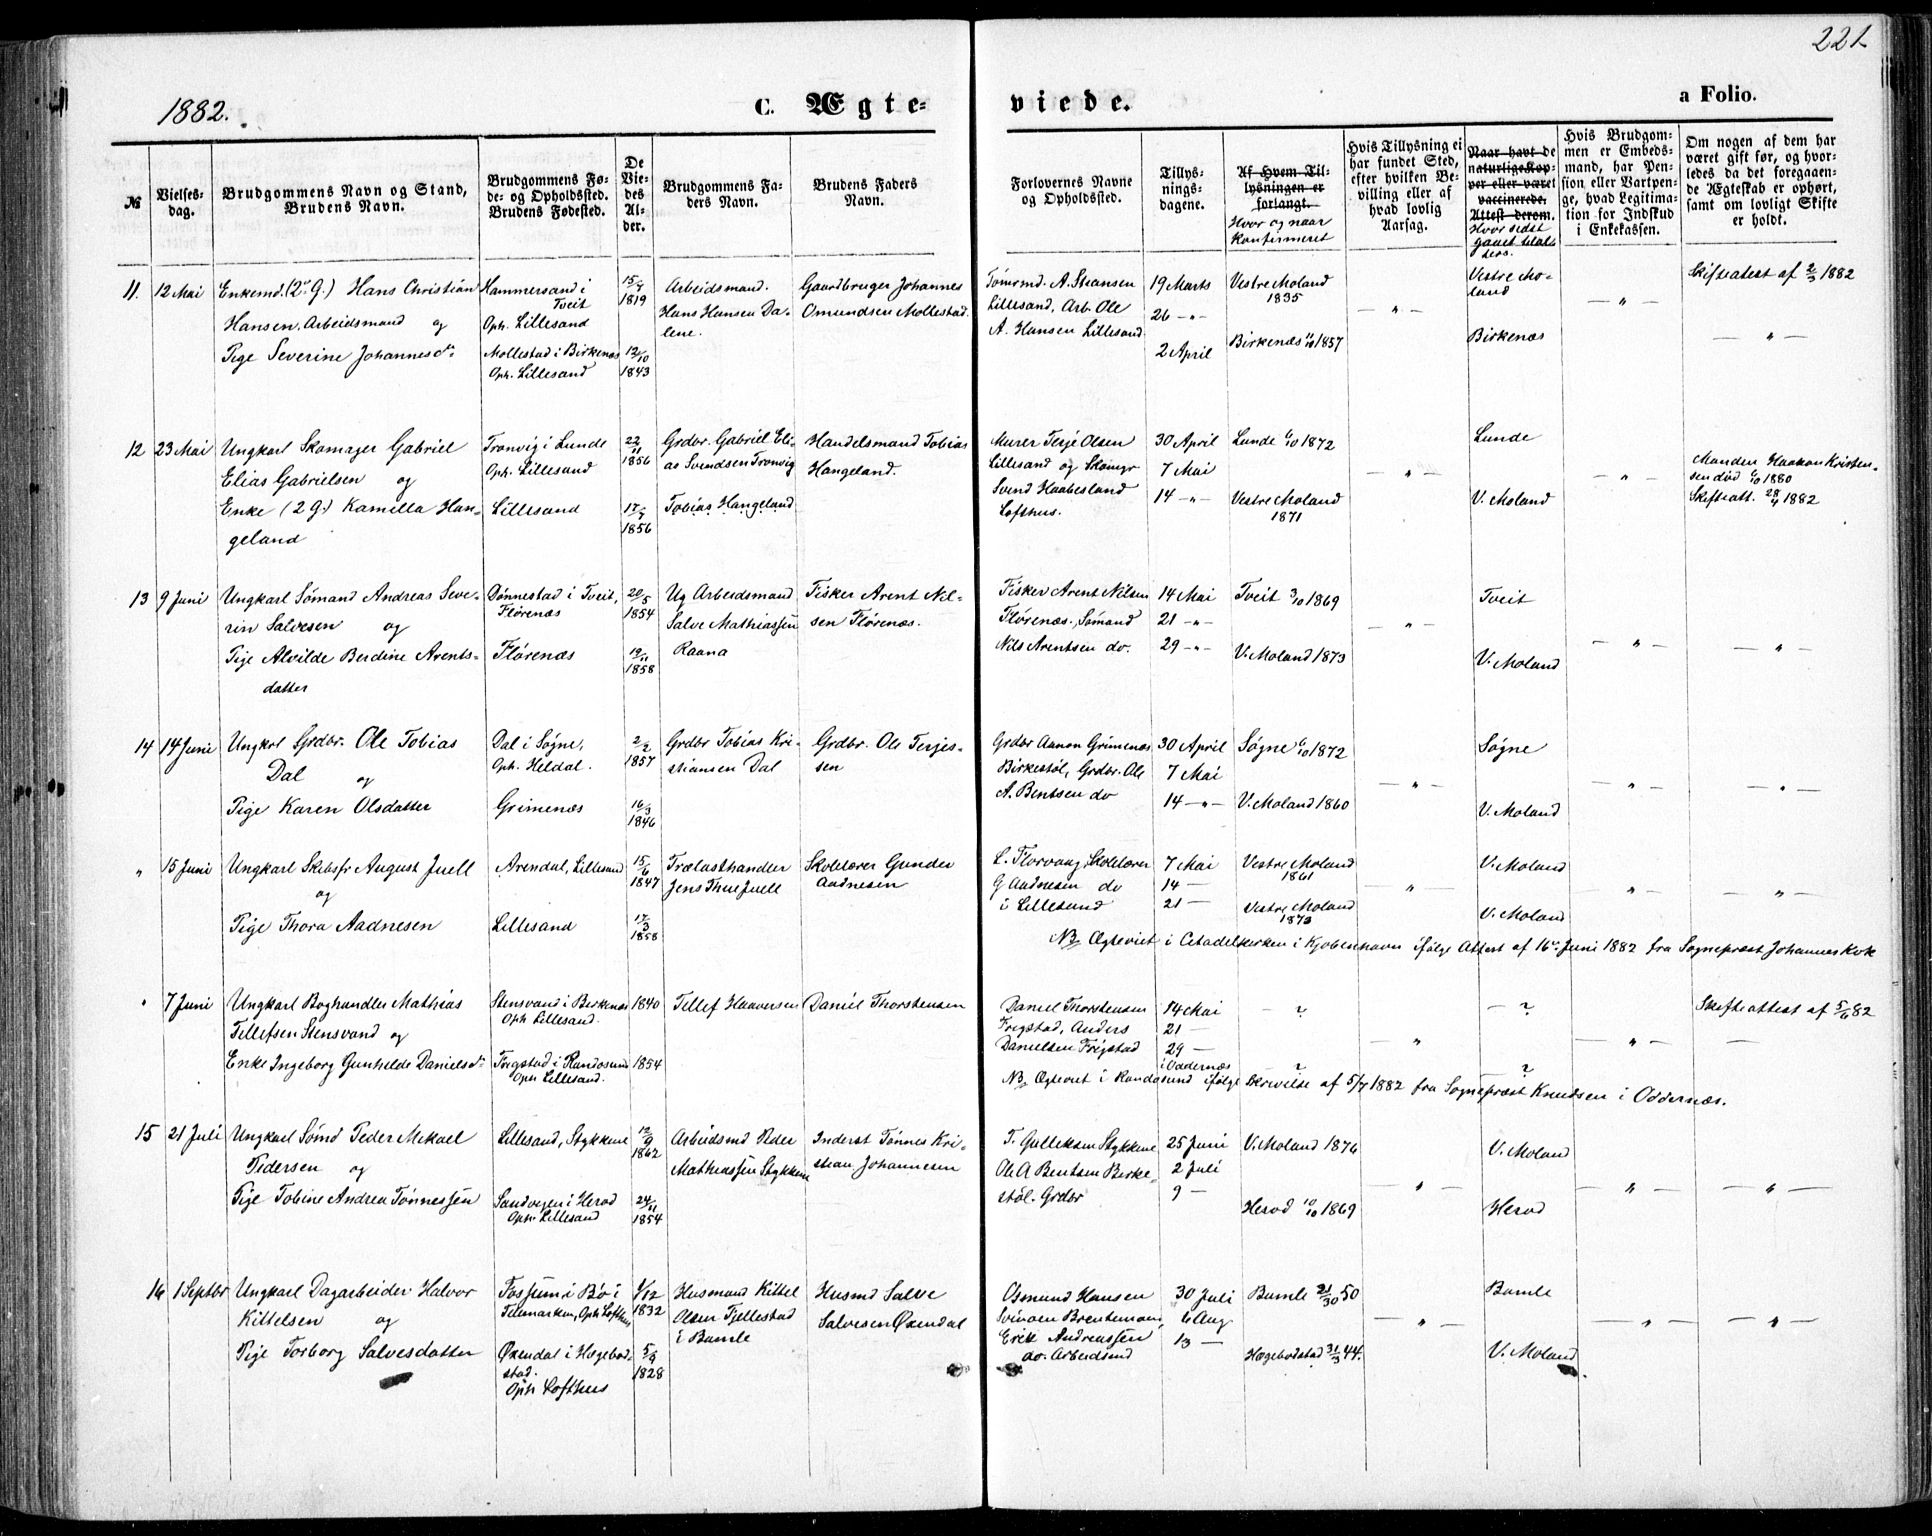 221
1882.
C. Ægte-
viede.
a Folio.
№
Vielses-
dag.
Brudgommens Navn og Stand,
Brudens Navn.
Brudgommens Fø-
de- og Opholdssted.
Brudens Fødested.
De
Vie-
des
Al-
der.
Brudgommens Fa-
ders Navn.
Brudens Faders
Navn.
Forlovernes Navne
og Opholdssted.
Tillys-
nings-
dagene.
Af Hvem Til-
lysningen er
forlangt.
Hvor og naar
Konfirmeret
Hvis Tillysning ei
har fundet Sted,
efter hvilken Be-
villing eller af
hvad lovlig
Aarsag.
Naar havt de
naturlige Kop-
per eller været
vaccinerede.
Attest derom.
Hvor sidst
Hvis Brudgom-
men er Embeds-
mand, har Pen-
sion eller Vartpen-
ge, hvad Legitima-
tion for Indskud
i Enkekassen.
Om nogen af dem har
været gift før, og hvor-
ledes da det foregaaen-
de Ægteskab er ophørt,
samt om lovligt Skifte
er holdt.
11. 12 Mai
Enkemd. (2. G.) Hans Christian
Hansen, Arbeidsmand og
Pige Severine Johannesdr
Hammersand i
Tveit
Oph. Lillesand
Mollestad i Birkenæs
Oph. Lillesand
1819
12/10
1843
Arbeidsmand.
Hans Hansen Da-
lene.
Gaardbruger Johannes
Omundsen Mollestad.
Tømrmd. A. Steansen
Lillesand, Arb. Ole
A. Hansen Lillesand
19 Marts
26 -"-
2 April
Vestre Moland
1835
Birkenæs 1857
— " —
Vestre Mo-
land
Birkenæs
— " —
Skifteatest af 2/3 1882
— " —
12 23 Mai
Ungkarl Skomager Gabriel
Elias Gabrielsen og
Enke (2 G.) Kamilla Han-
geland
Tronvig i Lunde
Oph. Lillesand
Lillesand
22/11
1856
17/7
1856
Grdbr. Gabriel Eli-
as Svendsen Tronvig
Tobias Hangeland
Handelsmand Tobias
Hangeland.
Murer Terje Olsen
Lillesand og Skomgr
Svend Haabesland
Lofthus.
30 April
7 Mai
14 -"-
Lunde 6/10 1872
Vestre Moland
1871
— " —
Lunde
V. Moland
— " —
Manden Haakon Kristen-
sen død 6/10 1880
Skifteatt. 28/4 1882
13 9 Juni
Ungkarl Sømand Andreas Seve-
rin Salvesen og
Pige Alvilde Berdine Arents-
datter
Dønnestad i Tveit,
Flørenæs
Flørenæs
20/5
1854
19/11
1858
Ug Arbeidsmand
Salve Mathiassen
Raana
Fisker Arent Nil-
sen Flørenæs.
Fisker Arent Nilsen
Flørenæs, Sømand
Nils Arentsen do.
14 Mai
21 -"-
29 -"-
Tveit 3/10 1869
V. Moland 1873
— " —
Tveit
V. Moland
— " —
— " —
14 14 Juni
Ungkrl Grdbr. Ole Tobias
Dal og
Pige Karen Olsdatter
Dal i Søgne,
Oph. Heldal.
Grimenæs
2/2
1857
16/3
1846
Grdbr Tobias Kri-
stiansen Dal
Grdbr. Ole Terjes-
sen
Grdbr Aanon Grimenæs
Birkestøl, Grdbr. Ole
A. Bentsen do
30 April
7 Mai
14 -"-
Søgne 6/10 1872
V. Moland 1860
— " —
Søgne
V. Moland
— " —
— " —
" 15 Juni
Ungkarl Skibsfr August Juell
og
Pige Thora Aadnesen
Arendal, Lillesand
Lillesand
15/6
1847
17/3
1858
Trælasthandler
Jens Thue Juell
Skolelærer Gunder
Aadnesen
L. Florvaag, Skolelærer
G Aadnesen do
i Lillesand
7 Mai
14 —
21 —
Vestre Moland
1861
Vestre Moland
1873
"
V. Moland
V. Moland
— " —
— " —
NB Ægteviet i Citadelkirken i Kjøbenhavn ifølge Attest af 16. Juni 1882 fra Sognepræst Johannes Kok
" 7 Juni
Ungkarl Boghandler Mathias
Tellefsen Stensvand og
Enke Ingeborg Gunhilde Danielsdr
Stensvand i Birkenæs
Oph. Lillesand.
Frigstad i Randøsund
Oph. Lillesand.
1840
1854
Tellef Haaversen
Daniel Thorstensen
Daniel Thorstensen
Frigstad, Anders
Danielsen Frigstad
14 Mai
21 —
29 —
i Oddernæs
— ? —
?
— " —
— ? —
?
— " —
Skifteattest af 5/6 82
— " —
NB Ægteviet i Randøsund ifølge Skrivelse af 5/7 1882 fra Sognepræst Knudsen i Oddernæs.
15 21 Juli
Ungkarl Sømd Peder Mikael
Pedersen og
Pige Tobine Andrea Tønnessen
Lillesand, Stykkene
Sandvegen i Herad
Oph. Lillesand
12/9
1862
24/11
1854
Arbeidsmd Peder
Mathiassen Stykkene
Inderst Tønnes Kri-
stian Johannesen
T. Gulliksen Stykkene
Ole A Bentsen Birke-
støl. Grdbr
25 Juni
2 Juli
9 —
V. Moland 1876
Herad 10/10 1869
— " —
V. Moland
Herad
— " —
— " —
16 1 Septbr
Ungkarl Dagarbeider Halvor
Kittelsen og
Pige Torborg Salvesdatter
Fossum i Bø i
Telemarken, Oph Lofthus
Øxendal i Hægebod-
stad.
Oph Lofthus
1/12
1832
5/9
1828
Husmand Kittel
Olsen Fjellestad
i Bamle
Husmd Salve
Salvesen Øxendal
Osmund Hansen
Erik Andreassen
do. Arbeidsmd
30 Juli
6 Aug
13 —
Bamle 50
Hægebodstad 31/3 44.
— " —
Bamle
V. Moland
— " —
— " —